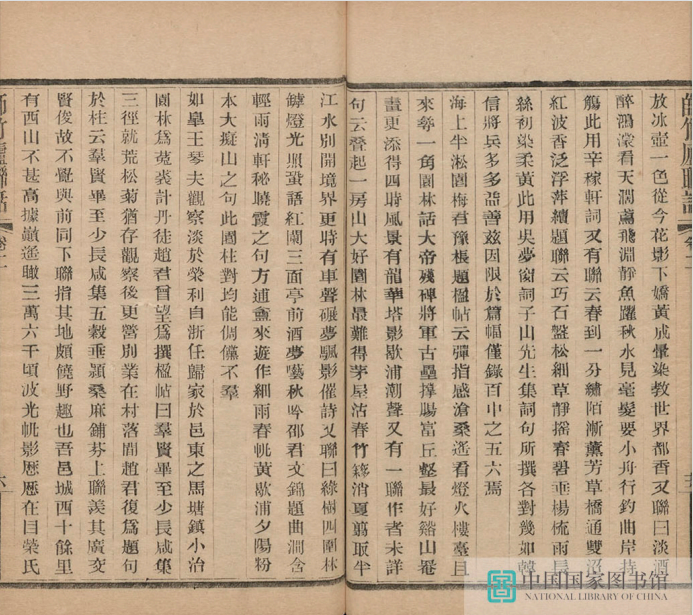 放冰壺一色從今花影下嬌黃成暈染教世界都香又聯曰淡酒
醉鴻濛看天濶鳶飛淵靜魚躍秋水見毫髮要小舟行釣曲岸持
觴此用辛稼軒詞又有聯云春到一分繡陌漸薰芳草橋通雙沼
紅波香泛浮萍續題聯云巧石盤松細草靜搖春碧垂楊梳雨長
絲初染柔黃此用吳夢窗詞子山先生集詞句所撰各對幾如韓
信將兵多多益善茲因限於篇幅僅錄百中之五六焉
海上半淞園梅君豫棖題楹帖云彈指感滄桑遙看燈火樓臺且
來尋一角園林話大帝殘碑將軍古壘撑腸富丘壑最好谿山罨
畫更添得四時風景有龍華塔影歇浦潮聲又有一聯作者未詳
句云疊起一房山大好園林最難得茅屋沽春竹簃消夏翦取半
江水別開境界更時有車聲碾夢颿影催詩又聯曰綠樹四圍林
罅燈光照蛩語紅闌三面亭前酒夢囈秋吟邵君文錦題曲澗含
輕雨清軒秘曉霞之句方逋盦來遊作細雨春帆黃歇浦夕陽粉
本大癡山之句此園柱對均能倜儻不羣
如皐王琴夫觀察淡於榮利自浙任歸家於邑東之馬塘鎮小治
園林爲菟裘計丹徒趙君曾望爲撰楹帖曰羣賢畢至少長咸集
三徑就荒松菊猶存觀察後更營別業在村落間趙君復爲題句
於柱云羣賢畢至少長咸集五穀垂穎桑麻鋪棻上聯羨其廣交
賢俊故不覺與前同下聯指其地頗饒野趣也吾邑城西十餘里
有西山不甚高據巔遙瞰三萬六千頃波光帆影歷歷在目榮氏
師竹廬聯話
卷十二
六
中国国家图书馆
NATIONAL LIBRARY OF CHINA